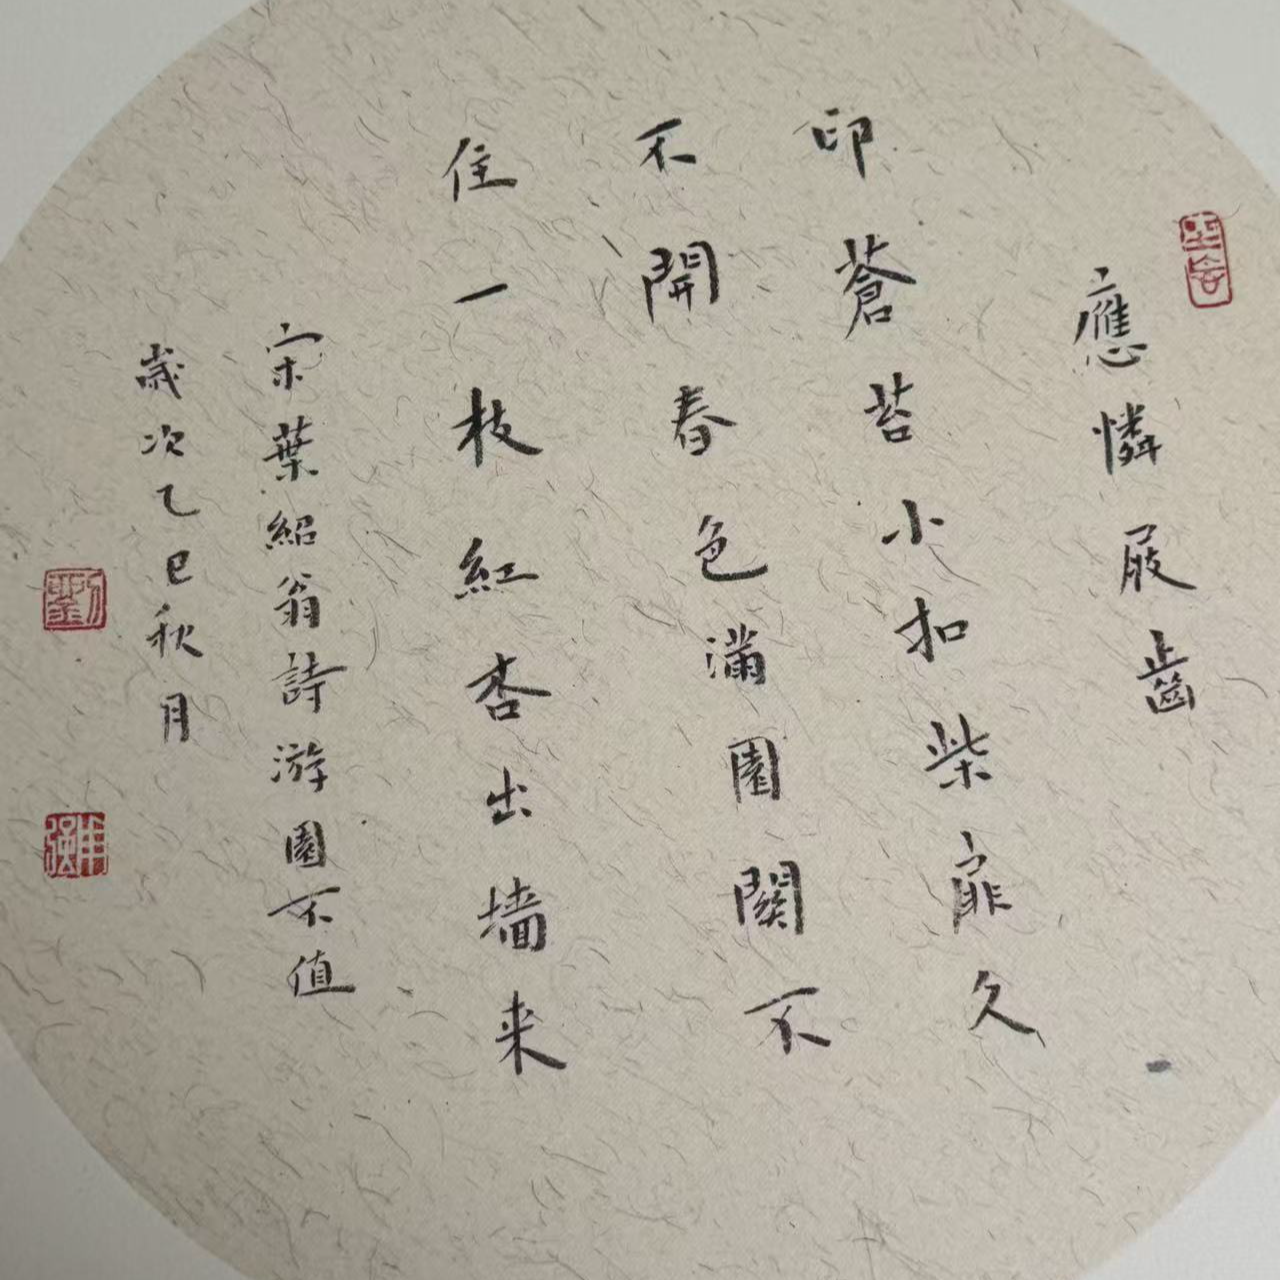 應憐屐齒
印蒼苔小扣柴扉久
不開春色滿園關不
住一枝紅杏出墙来
宋葉紹翁詩游園不值
歲次乙巳秋月